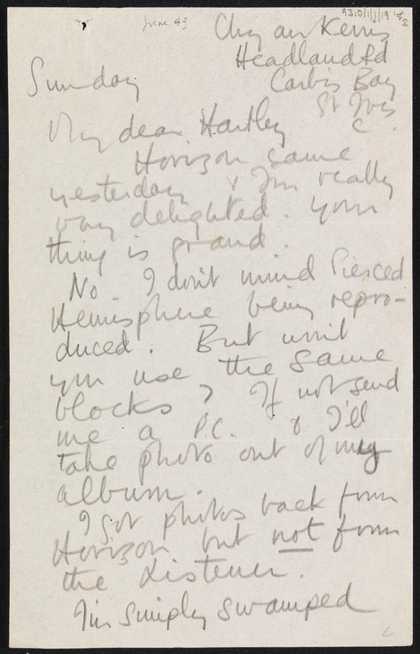 June 43
Chy an Kerris
Headland Rd
Carbis Bay
St Ives
C.
Sunday
My dear Hartley
Horizon came
yesterday & I'm really
very delighted. Your
thing is grand.
No. I don't mind Pierced
Hemisphere being repro-
duced. But won't
you use the same
blocks? If not send
me a P.C. & I'll
take photo out of my
album.
I got photos back from
Horizon but not from
the Listener.
I'm simply swamped